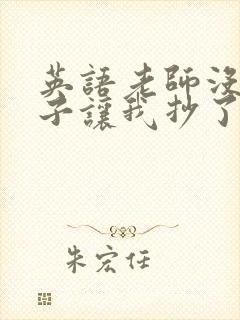 英語老師沒
子讓我抄了
朱宏任